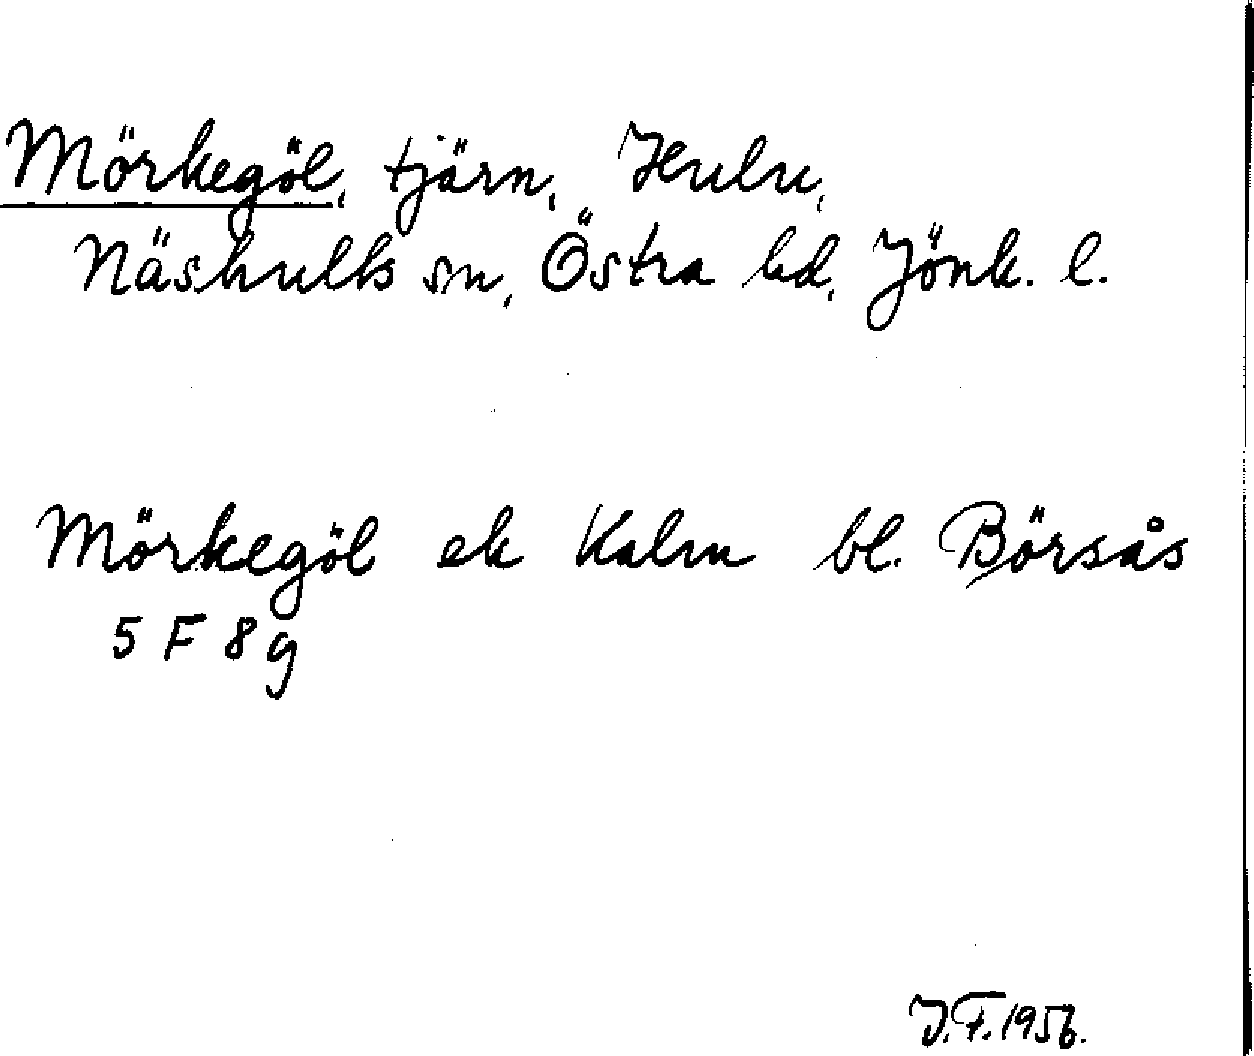 Mörkegöl, tjärn, Hulu,
Näshults sn, Östra hd, Jönk. l.
Mörkegöl ek Kalm bl. Börsås
5 F 8 g
J.F. 1956.